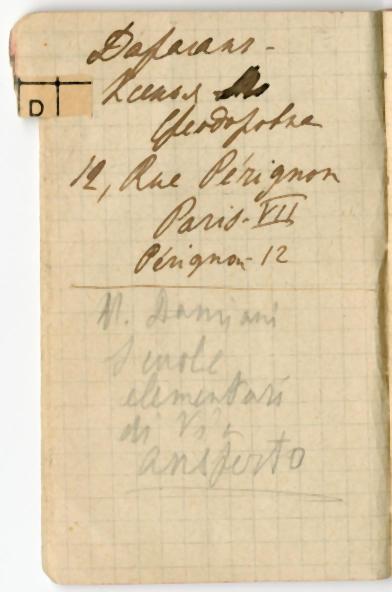 D
Дараган -
Ксения
Феодоровна
12, Rue Pérignon
Paris - VII
Pérignon - 12
N. Damjani
Scuole
elementari
di Via
Ansperto